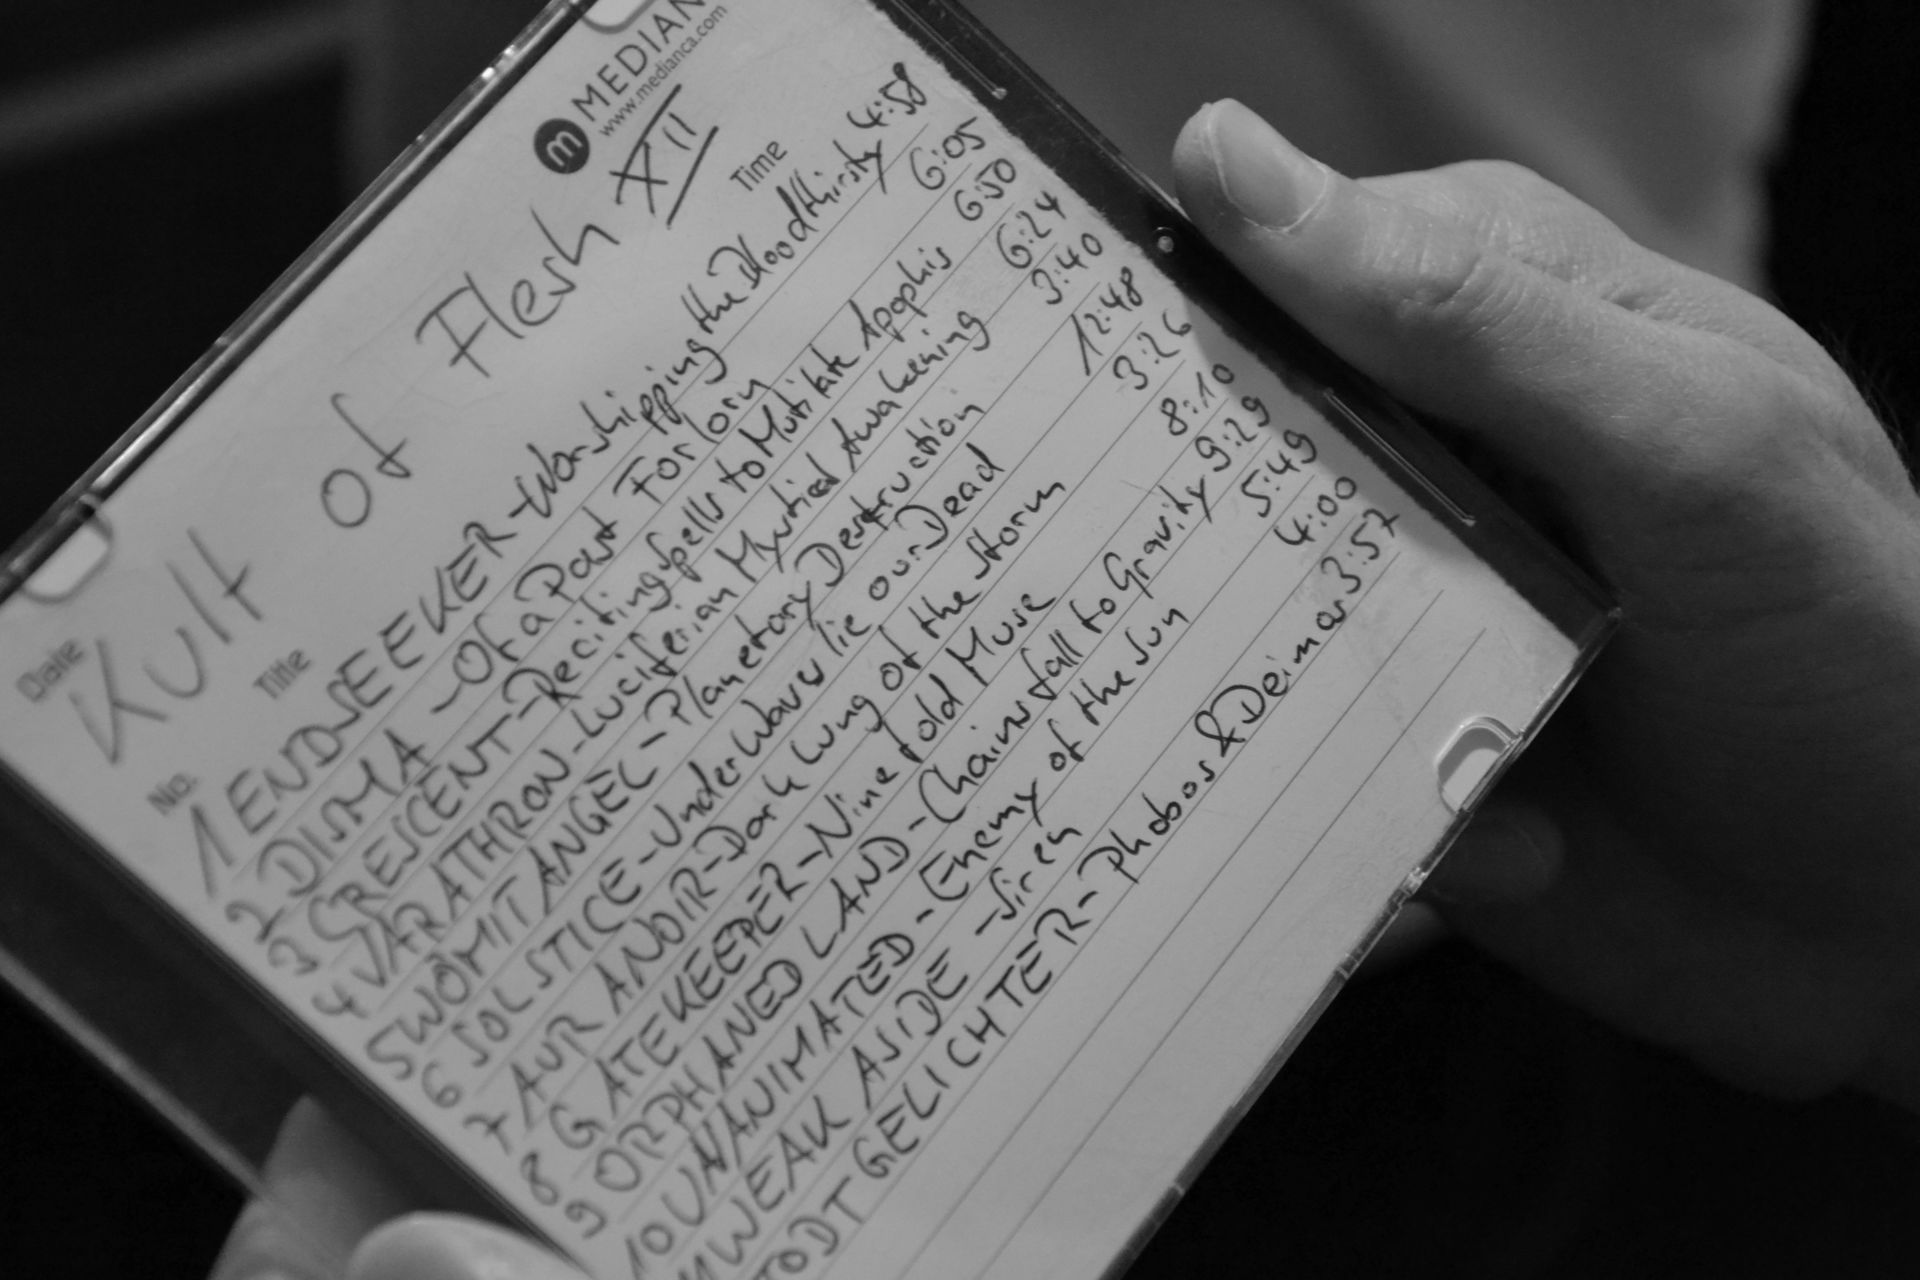 MEDIAN
www.medianca.com
Date
Kult of Flesh XII
No. Title Time
1 ENDSEEKER - Worshipping the Bloodthirsty 4:58
2 DISMA - Of a Past Forlorn 6:05
3 CRESCENT - Reciting Spells to Mutilate Apophis 6:50
4 VARATHRON - Luciferian Mystical Awakening 6:24
5 WÖMIT ANGEL - Planetary Destruction 3:40
6 SOLSTICE - Under Waves lie our Dead 12:48
7 AUR ANOIR - Dark Lung of the Storm 3:26
8 GATEKEEPER - Nine fold Muse 8:10
9 ORPHANED LAND - Chains fall to Gravity 9:29
10 UNANIMATED - Enemy of the Sun 5:49
11 WEAK ASIDE - Siren 4:00
TODTGELICHTER - Phobos & Deimos 3:57